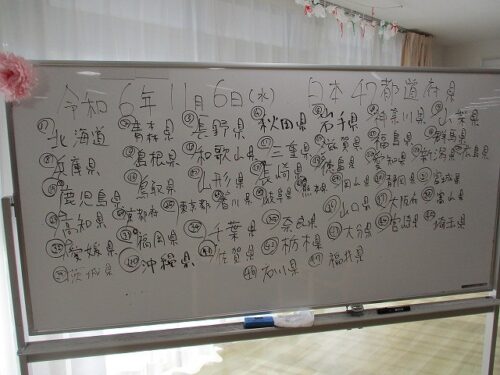 令和 6年 11月 6日(水) 日本 47都道府県
北海道 青森県 長野県 秋田県 岩手県 神奈川県 山梨県
兵庫県 島根県 和歌山県 三重県 滋賀県 福島県 群馬県
鹿児島県 鳥取県 山形県 長崎県 徳島県 愛知県 新潟県 広島県
高知県 京都府 東京都 香川県 岐阜県 熊本県 岡山県 静岡県 宮城県
愛媛県 福岡県 千葉県 奈良県 山口県 大阪府 富山県
茨城県 沖縄県 佐賀県 栃木県 大分県 宮崎県 埼玉県
石川県 福井県